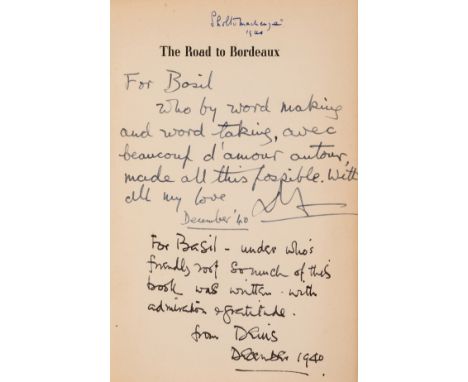 1940
The Road to Bordeaux
For Basil
who by word making
and word taking, avec
beaucoup d'amour autour,
made all this possible. With
all my love
December '40
For Basil - under who's
friendly roof so much of this
book was written - with
admiration & gratitude.
from Denis
December 1940